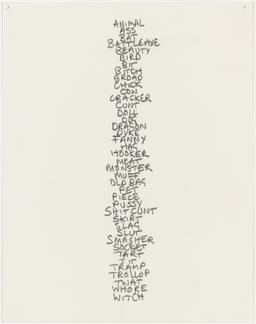 ANIMAL
ASS
BAT
BATTLEAXE
BEAUTY
BIRD
BIT
BITCH
BROAD
CHICK
COW
CRACKER
CUNT
DOLL
DOG
DRAGON
DYKE
FANNY
HAG
HOOKER
MEAT
MONSTER
MUFF
OLD BAG
PET
PIECE
PUSSY
SHIT CUNT
SKIRT
SLAG
SLUT
SMASHER
SOCKET
TART
TIT
TRAMP
TROLLOP
TWAT
WHORE
WITCH